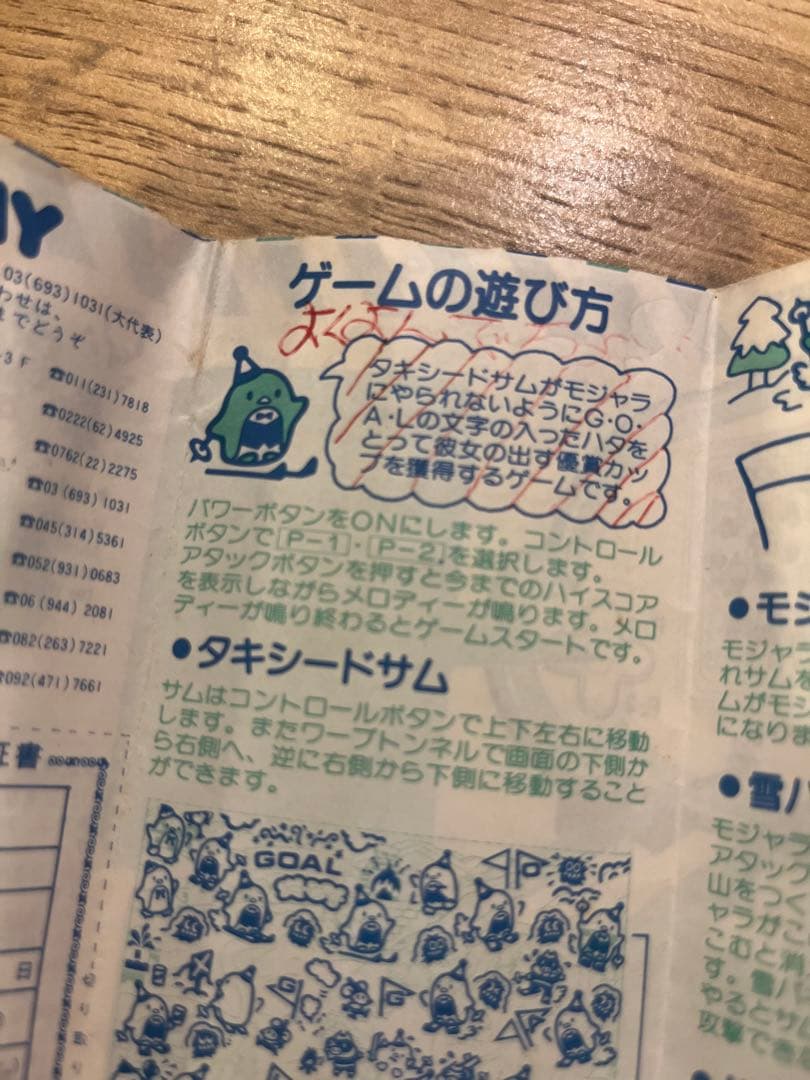 MY
03(693)1031(大代表)
わせは、
までどうぞ
-3F
☎011(231)7818
☎0222(62)4925
☎0762(22)2275
☎03(693)1031
☎045(314)5361
☎052(931)0683
☎06(944)2081
☎082(263)7221
☎092(471)7661
証書
日
ゲームの遊び方
タキシードサムがモジャラ
にやられないようにG・O・
A・Lの文字の入ったハタを
とって彼女の出す優賞カッ
プを獲得するゲームです。
パワーボタンをONにします。コントロール
ボタンで[P-1]・[P-2]を選択します。
アタックボタンを押すと今までのハイスコア
を表示しながらメロディーが鳴ります。メロ
ディーが鳴り終わるとゲームスタートです。
●タキシードサム
サムはコントロールボタンで上下左右に移動
します。またワープトンネルで画面の下側か
ら右側へ、逆に右側から下側に移動すること
ができます。
GOAL
G
G
●モジ
モジャラ
れサムを
ムがモジ
になりま
●雪バ
モジャラ
アタック
山をつく
ャラがこ
こむと消
す。雪バ
やるとサ
攻撃でき